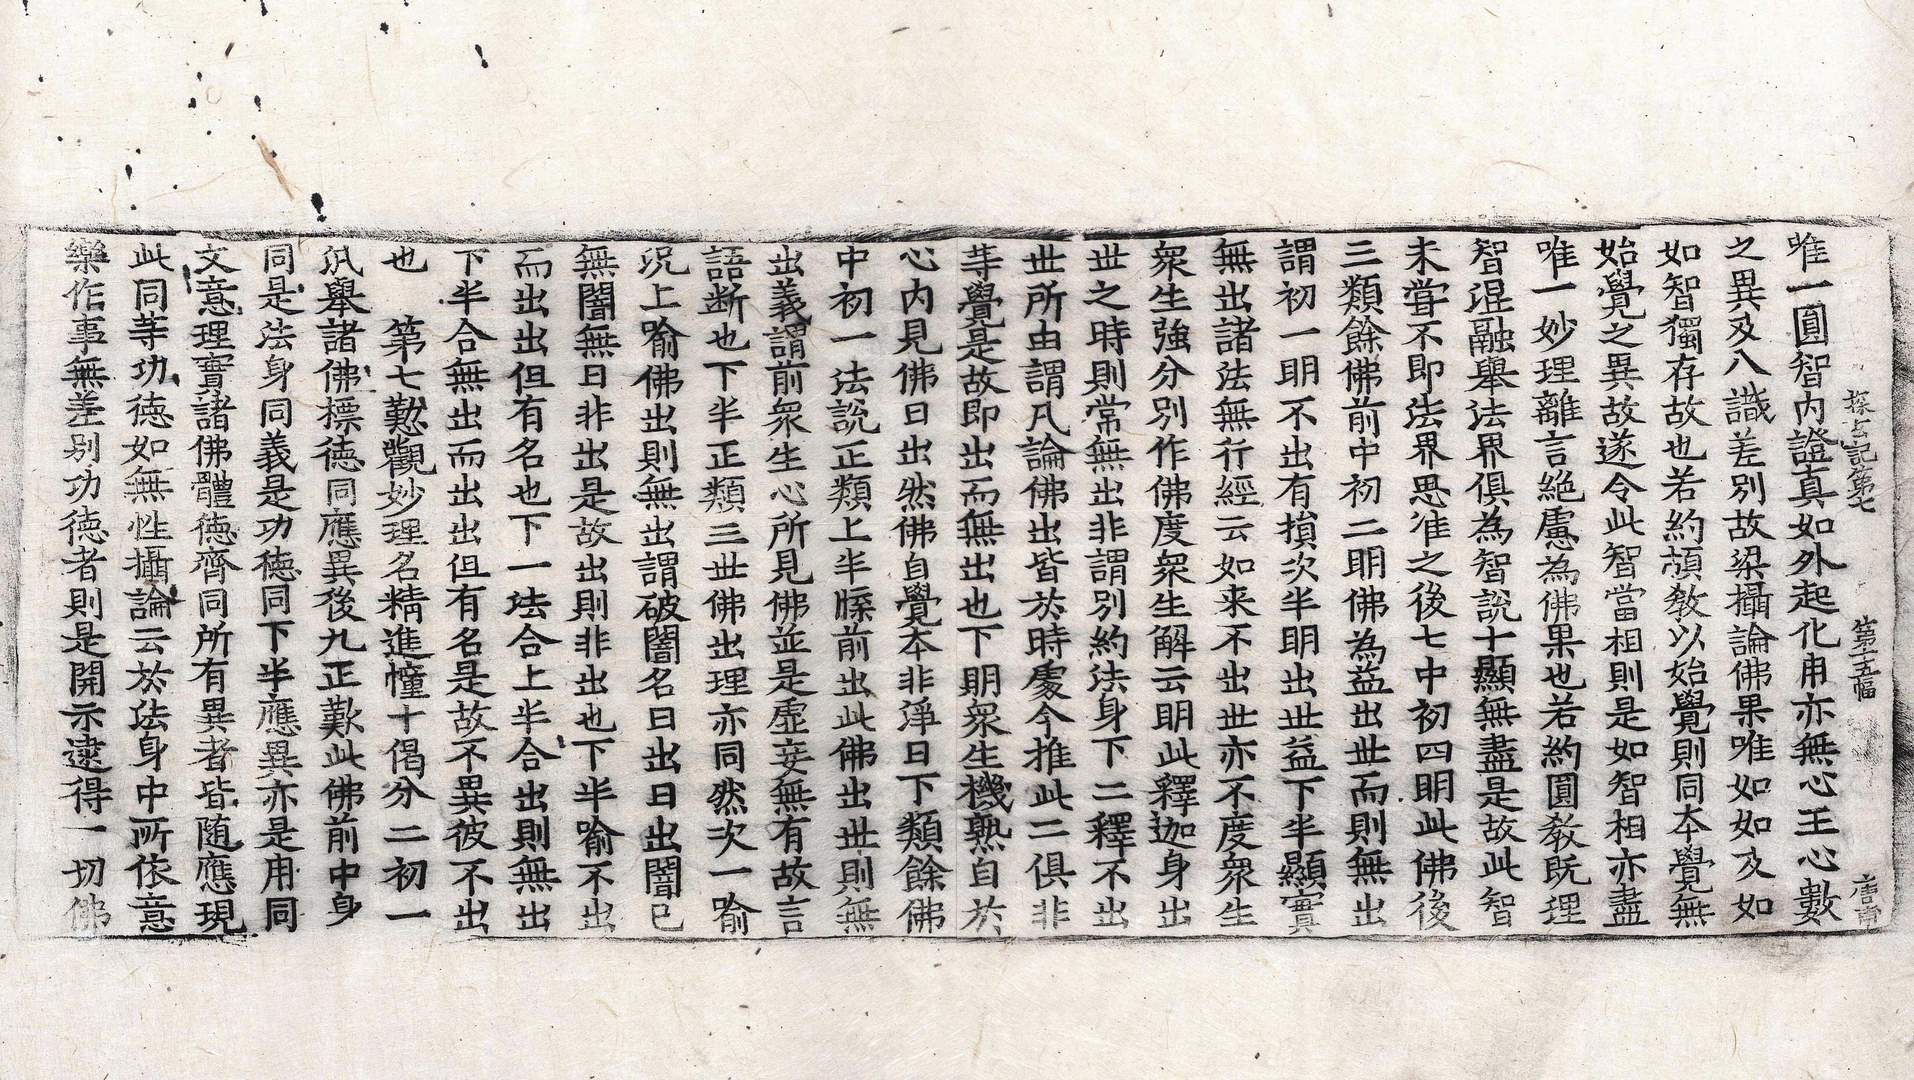 探玄記第七　第十五幅
唯一圓智內證真如外起化用亦無心王心數
之異及八識差別故梁攝論佛果唯如如及如
如智獨存故也若約頓教以始覺則同本覺無
始覺之異故遂令此智當相則是如智相亦盡
唯一妙理離言絶慮為佛果也若約圓教既理
智混融舉法界俱為智說十顯無盡是故此智
未甞不即法界思准之後七中初四明此佛後
三類餘佛前中初二明佛為益出世而則無出
謂初一明不出有損次半明出世益下半顯實
無出諸法無行經云如来不出世亦不度衆生
衆生強分別作佛度衆生解云明此釋迦身出
世之時則常無出非謂別約法身下二釋不出
世所由謂凡論佛出皆於時處今推此二俱非
䓁覺是故即出而無出也下明衆生機熟自於
心內見佛日出然佛自覺本非淨日下類餘佛
中初一法說正類上半牒前出此佛出世則無
出義謂前衆生心所見佛並是虛妄無有故言
語断也下半正類三世佛出理亦同然次一喻
況上喻佛出則無出謂破闇名日出日出闇已
無闇無日非出是故出則非出也下半喻不出
而出出但有名也下一法合上半合出則無出
下半合無出而出出但有名是故不異彼不出
也　第七歎觀妙理名精進幢十偈分二初一
汎舉諸佛標徳同應異後九正歎此佛前中身
同是法身同義是功徳同下半應異亦是用同
文意理實諸佛體徳齊同所有異者皆随應現
此同䓁功徳如無性攝論云於法身中所依意
樂作事無差别功徳者則是開示逮得一切佛